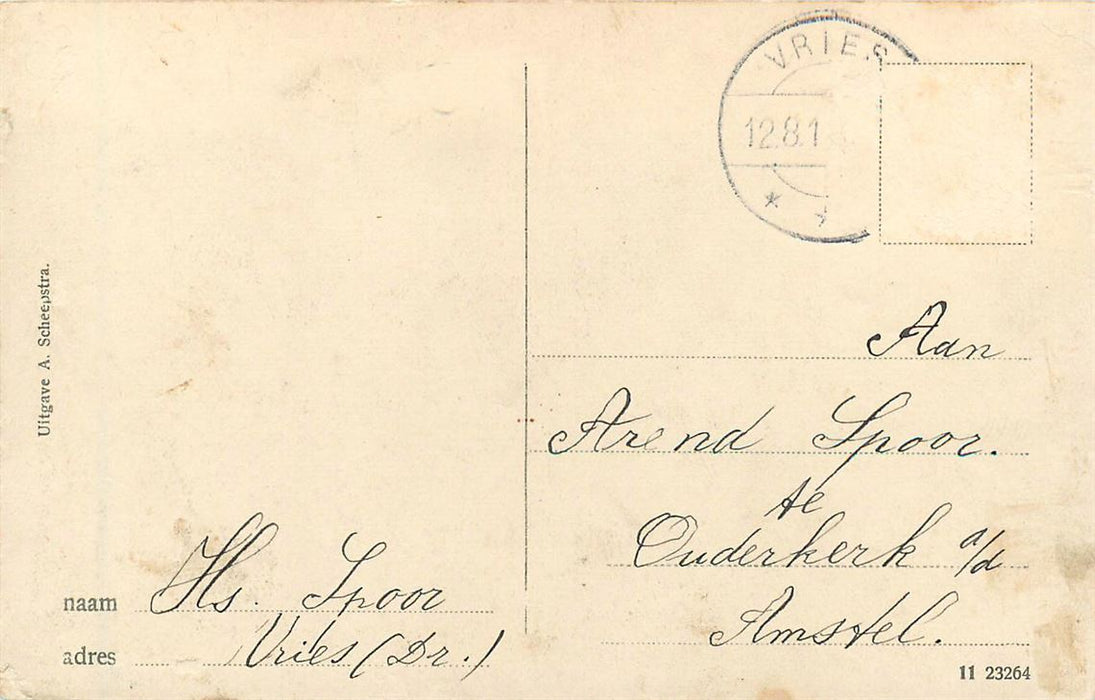 VRIES
12.8.1
Uitgave A. Scheepstra.
Aan
Arend Spoor.
te
Ouderkerk a/d
Amstel.
naam Hs. Spoor
adres Vries (Dr.)
11 23264